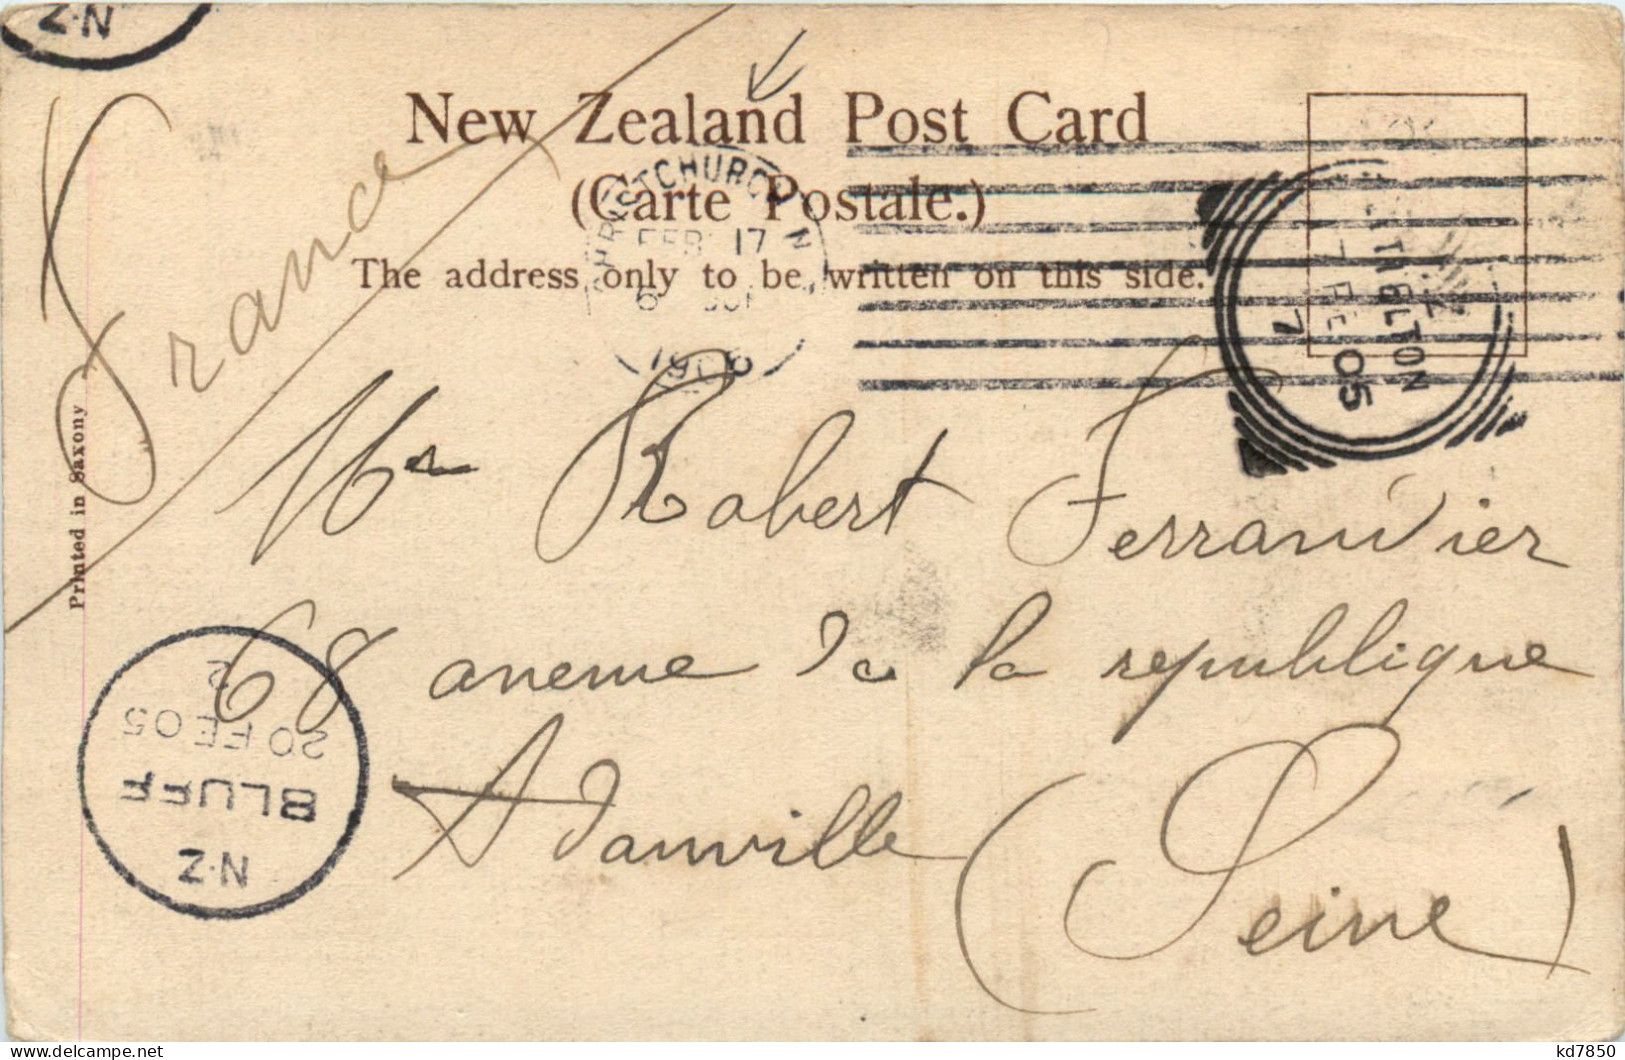 N·Z
New Zealand Post Card
(Carte Postale.)
The address only to be written on this side.
CHRISTCHURCH N
FEB 17
6
1905
LYTTELTON
7 FE 05
7
France
Printed in Saxony
Mr Robert
68 avenue de la république
(Seine)
2
20 FE 05
BLUFF
N·Z
kd7850